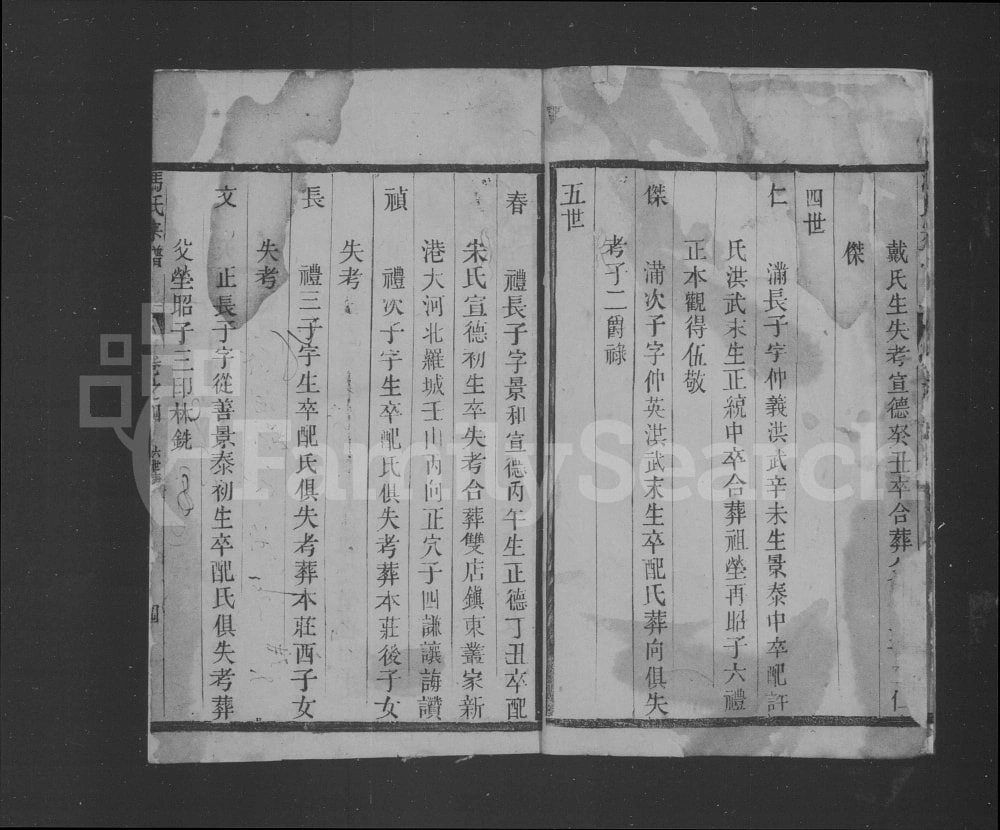 戴氏生失考宣德癸丑卒合葬
仁
傑
四世
仁　滿長子字仲義洪武辛未生景泰中卒配許
氏洪武末生正統中卒合葬祖塋再昭子六禮
正本觀得伍敬
傑　滿次子字仲英洪武末生卒配氏葬向俱失
考子二爵祿
五世
春　禮長子字景和宣德丙午生正德丁丑卒配
宋氏宣德初生卒失考合葬雙店鎮東叢家新
港大河北羅城壬山丙向正穴子四謙讓誨讚
禎　禮次子字生卒配氏俱失考葬本莊後子女
失考
長　禮三子字生卒配氏俱失考葬本莊西子女
失考
文　正長子字從善景泰初生卒配氏俱失考葬
父塋昭子三印林銑
馮氏宗譜　卷之四　六世　四
FamilySearch